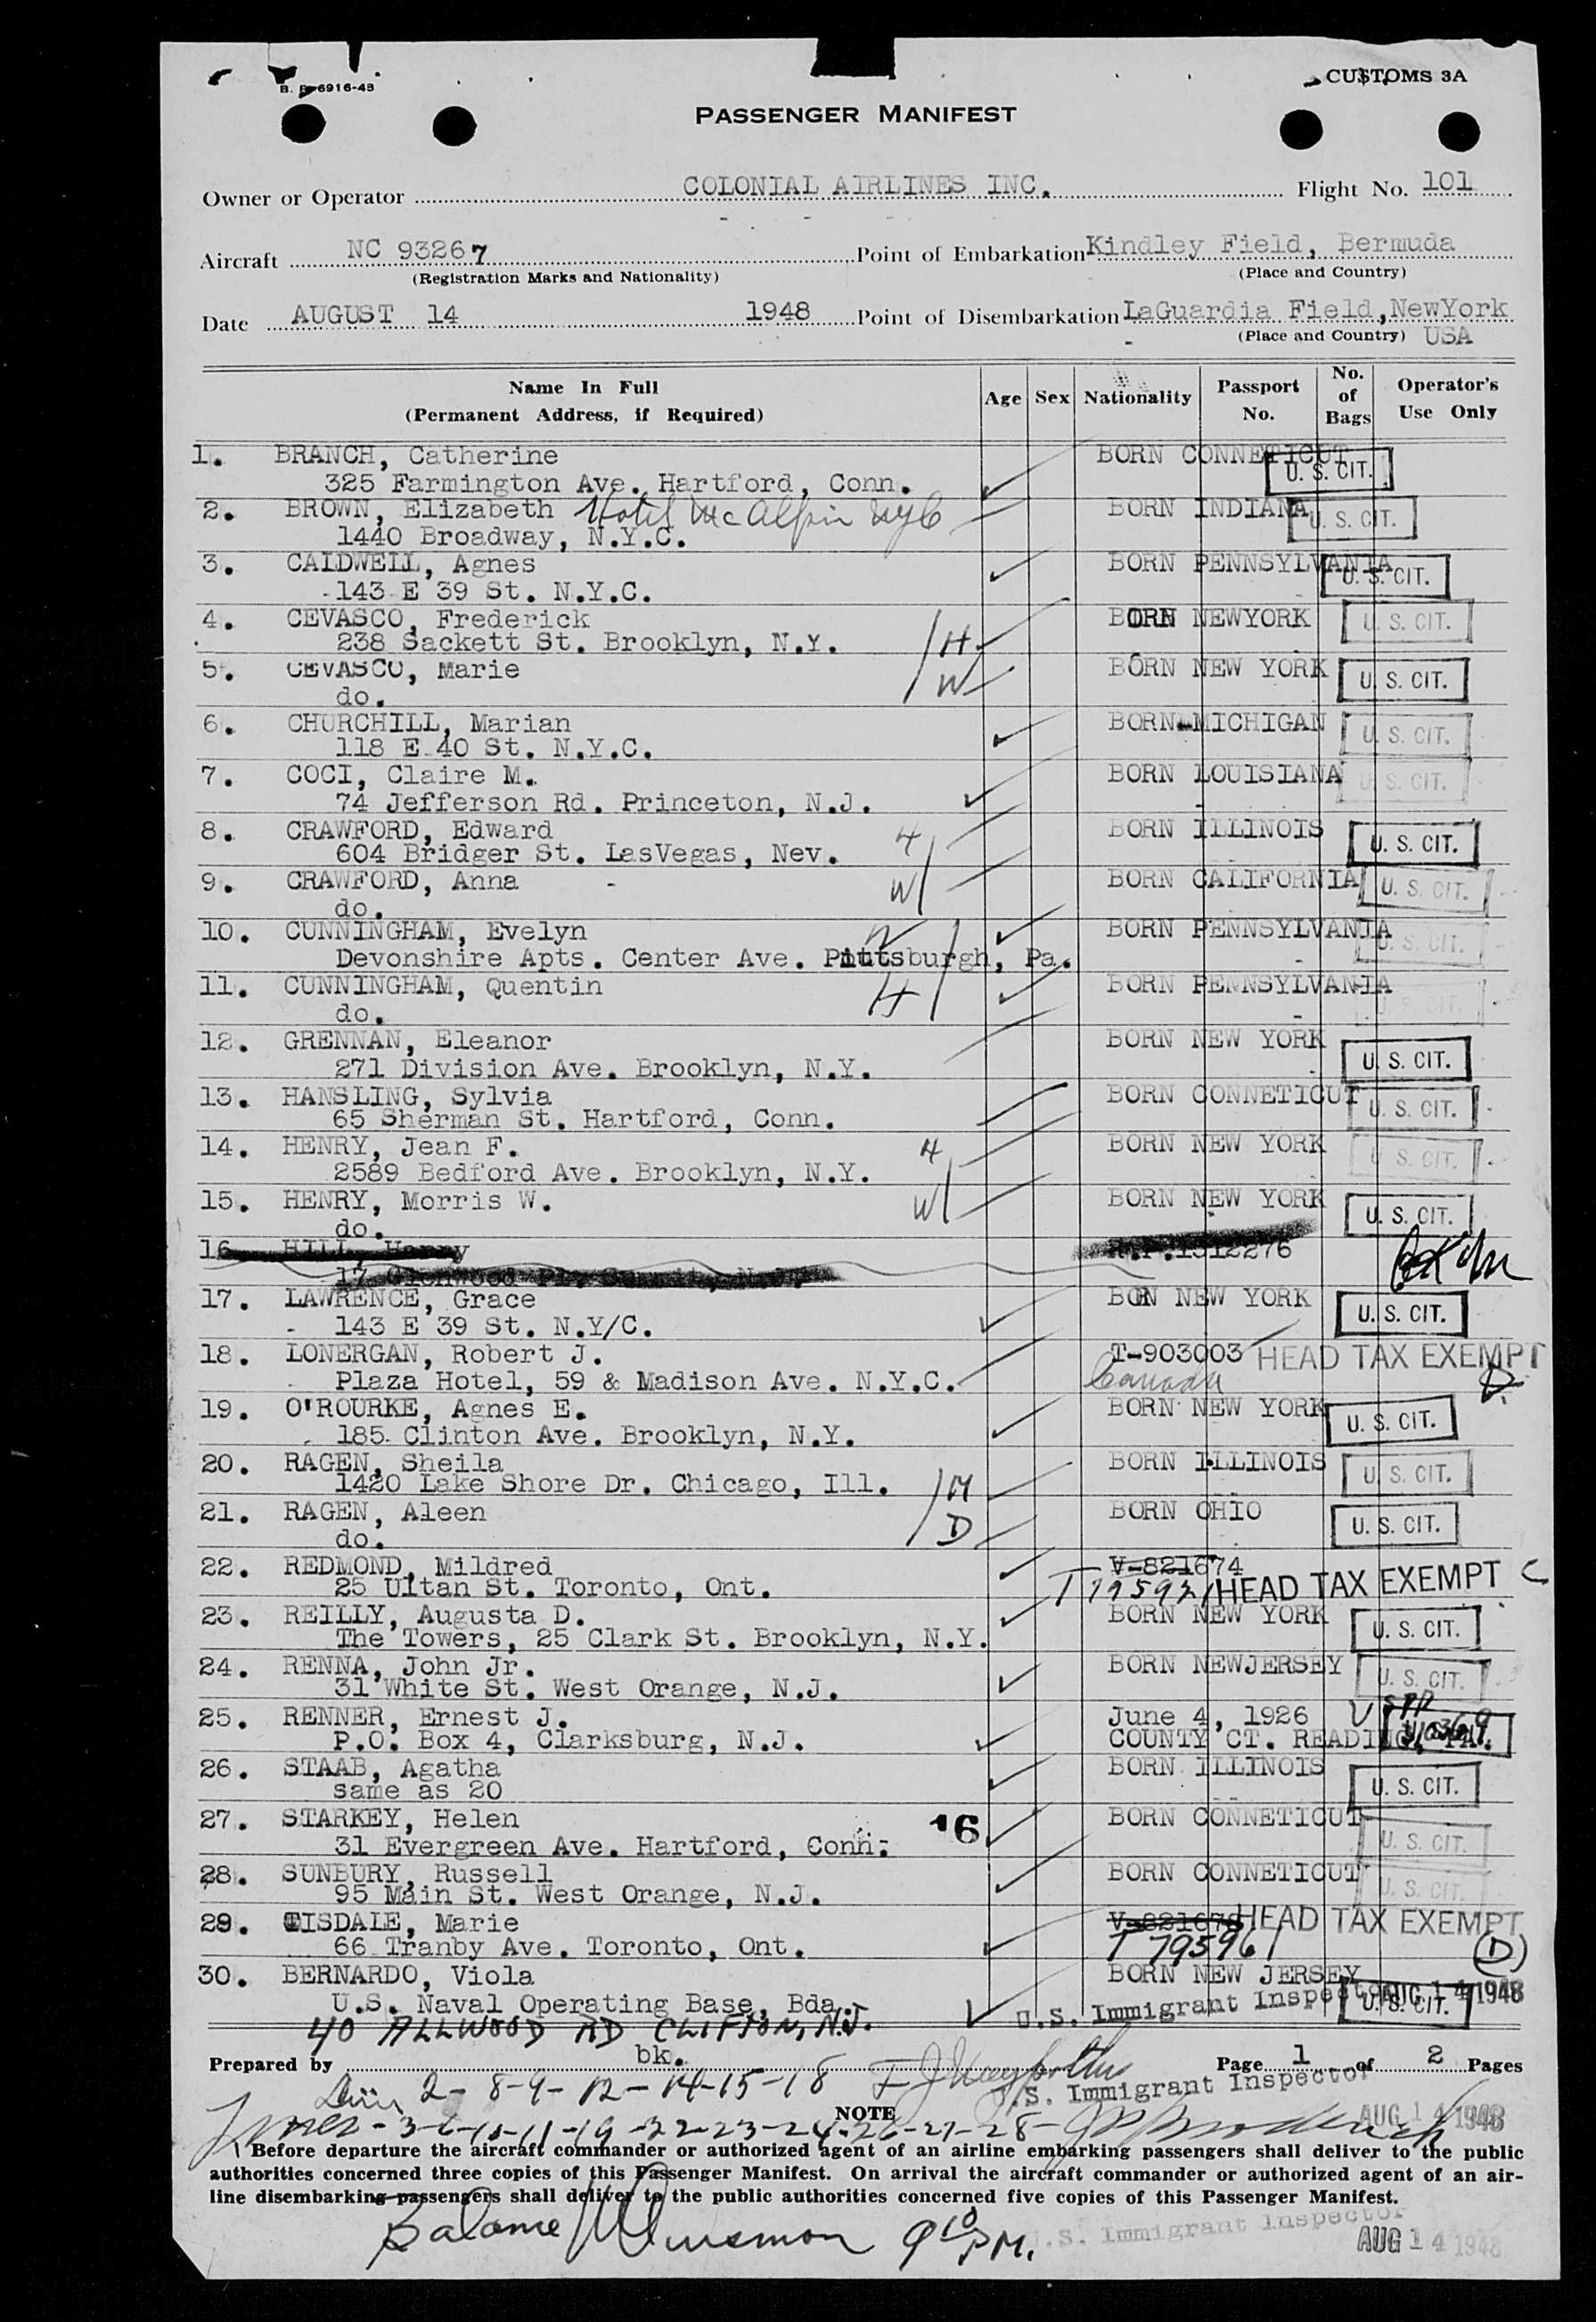 B. P. 6916-48
CUSTOMS 3A
PASSENGER MANIFEST
Owner or Operator COLONIAL AIRLINES INC. Flight No. 101
Aircraft NC 93267 Point of Embarkation Kindley Field, Bermuda
(Registration Marks and Nationality) (Place and Country)
Date AUGUST 14 1948 Point of Disembarkation LaGuardia Field, NewYork
(Place and Country) USA
Name In Full
(Permanent Address, if Required)
Age Sex Nationality Passport No. No. of Bags Operator's Use Only
1. BRANCH, Catherine BORN CONNETICUT
325 Farmington Ave. Hartford, Conn. U. S. CIT.
2. BROWN, Elizabeth Hotel McAlpin NYC BORN INDIANA U. S. CIT.
1440 Broadway, N.Y.C.
3. CALDWELL, Agnes BORN PENNSYLVANIA U. S. CIT.
143 E 39 St. N.Y.C.
4. CEVASCO, Frederick BORN NEWYORK U. S. CIT.
238 Sackett St. Brooklyn, N.Y. H
5. CEVASCO, Marie BORN NEW YORK U. S. CIT.
do. W
6. CHURCHILL, Marian BORN MICHIGAN U. S. CIT.
118 E 40 St. N.Y.C.
7. COCI, Claire M. BORN LOUISIANA U. S. CIT.
74 Jefferson Rd. Princeton, N.J.
8. CRAWFORD, Edward H BORN ILLINOIS U. S. CIT.
604 Bridger St. LasVegas, Nev.
9. CRAWFORD, Anna W BORN CALIFORNIA U. S. CIT.
do.
10. CUNNINGHAM, Evelyn W BORN PENNSYLVANIA U. S. CIT.
Devonshire Apts. Center Ave. Pittsburgh, Pa.
11. CUNNINGHAM, Quentin H BORN PENNSYLVANIA U. S. CIT.
do.
12. GRENNAN, Eleanor BORN NEW YORK U. S. CIT.
271 Division Ave. Brooklyn, N.Y.
13. HANSLING, Sylvia BORN CONNETICUT U. S. CIT.
65 Sherman St. Hartford, Conn.
14. HENRY, Jean F. H BORN NEW YORK U. S. CIT.
2589 Bedford Ave. Brooklyn, N.Y.
15. HENRY, Morris W. W BORN NEW YORK U. S. CIT.
do.
16 HILL, Harry 1312276
17 Glenwood Pl.
17. LAWRENCE, Grace BORN NEW YORK U. S. CIT.
143 E 39 St. N.Y/C.
18. LONERGAN, Robert J. T-903003 HEAD TAX EXEMPT
Plaza Hotel, 59 & Madison Ave. N.Y.C. Canada D
19. O'ROURKE, Agnes E. BORN NEW YORK U. S. CIT.
185 Clinton Ave. Brooklyn, N.Y.
20. RAGEN, Sheila BORN ILLINOIS U. S. CIT.
1420 Lake Shore Dr. Chicago, Ill. M
21. RAGEN, Aleen BORN OHIO U. S. CIT.
do. D
22. REDMOND, Mildred V-821674
25 Ultan St. Toronto, Ont. T 795921 HEAD TAX EXEMPT C
23. REILLY, Augusta D. BORN NEW YORK U. S. CIT.
The Towers, 25 Clark St. Brooklyn, N.Y.
24. RENNA, John Jr. BORN NEWJERSEY U. S. CIT.
31 White St. West Orange, N.J.
25. RENNER, Ernest J. June 4, 1926
P.O. Box 4, Clarksburg, N.J. COUNTY CT. READING, PA.
26. STAAB, Agatha BORN ILLINOIS U. S. CIT.
same as 20
27. STARKEY, Helen 16 BORN CONNETICUT U. S. CIT.
31 Evergreen Ave. Hartford, Conn.
28. SUNBURY, Russell BORN CONNETICUT U. S. CIT.
95 Main St. West Orange, N.J.
29. TISDALE, Marie V-821676 HEAD TAX EXEMPT
66 Tranby Ave. Toronto, Ont. T 795961 D
30. BERNARDO, Viola BORN NEW JERSEY
U.S. Naval Operating Base, Bda. U.S. Immigrant Inspector U. S. CIT. AUG 14 1948
40 ALLWOOD RD CLIFTON, N.J.
Prepared by bk. Page 1 of 2 Pages
2-8-9-12-14-15-18 U.S. Immigrant Inspector
NOTE AUG 14 1948
3-6-10-11-19-22-23-24-26-27-28-
Before departure the aircraft commander or authorized agent of an airline embarking passengers shall deliver to the public
authorities concerned three copies of this Passenger Manifest. On arrival the aircraft commander or authorized agent of an air-
line disembarking passengers shall deliver to the public authorities concerned five copies of this Passenger Manifest.
Balance 9 10 PM. U.S. Immigrant Inspector
AUG 14 1948